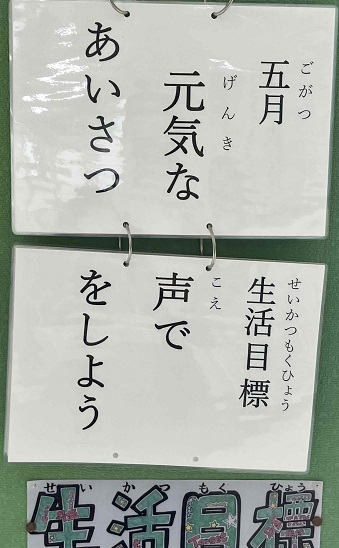 ごがつ
五月
せいかつもくひょう
生活目標
げんき
元気な
こえ
声で
あいさつ
をしよう
せいかつもくひょう
生活目標